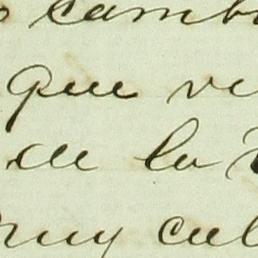 camb
que ve
de la
muy cul